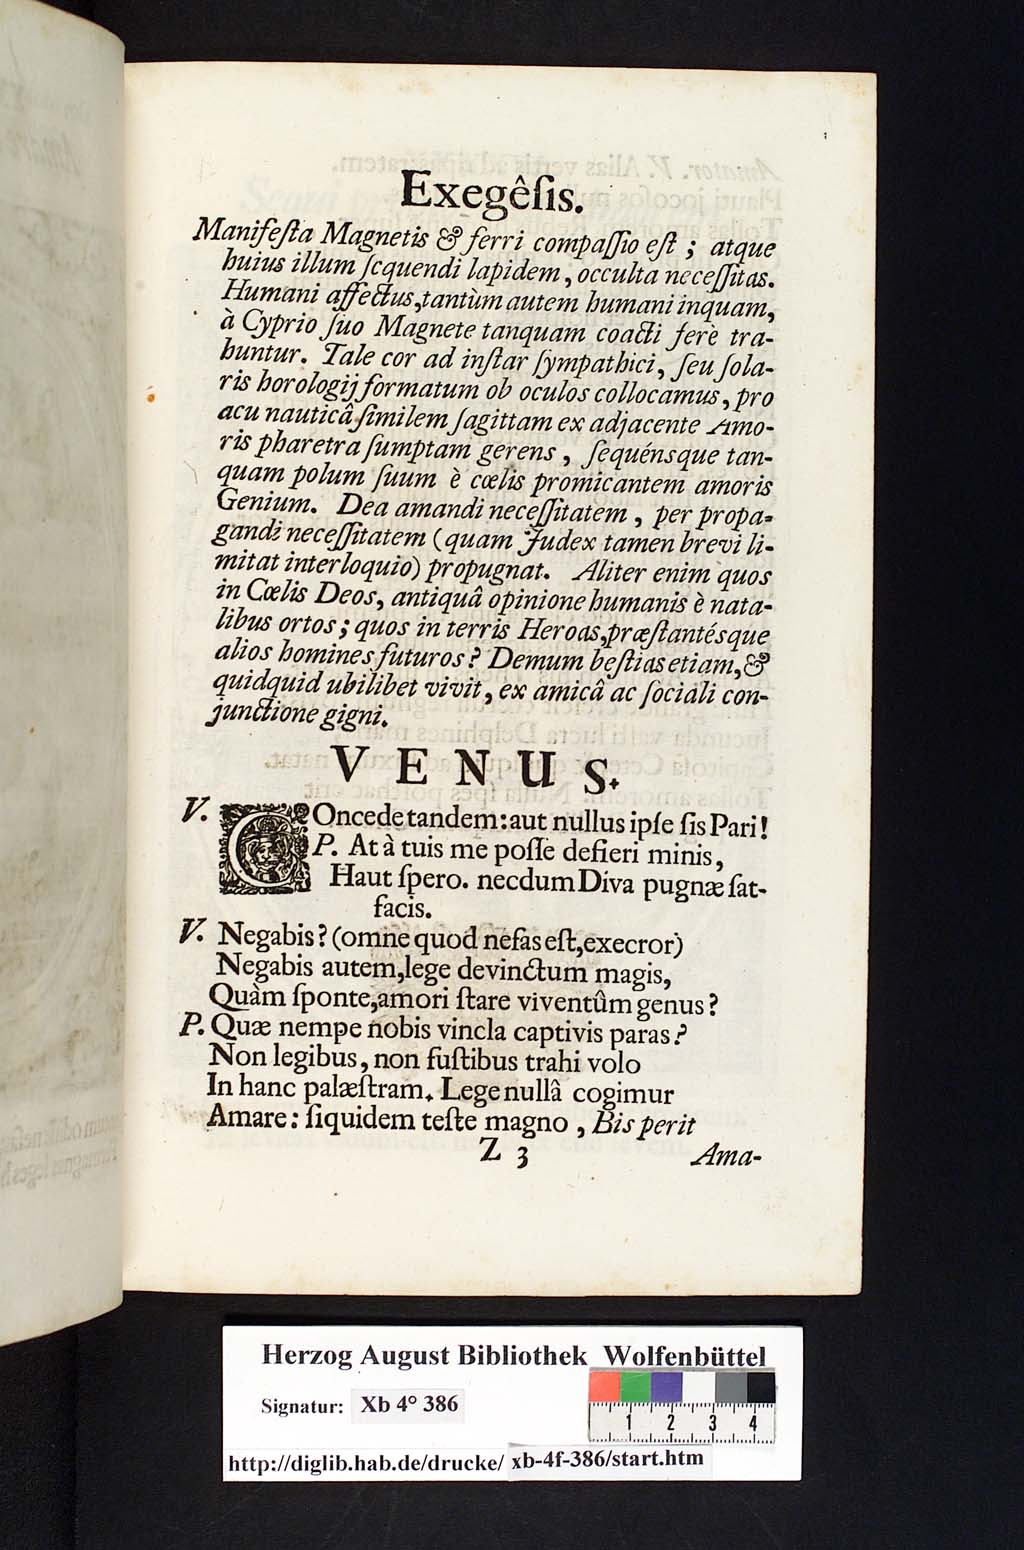 Exegêſis.
Manifeſta Magnetis & ferri compaſſio eſt ; atque
huius illum ſequendi lapidem, occulta neceſſitas.
Humani affectus, tantùm autem humani inquam,
à Cyprio ſuo Magnete tanquam coacti ferè tra-
huntur. Tale cor ad inſtar ſympathici, ſeu ſola-
ris horologij formatum ob oculos collocamus, pro
acu nauticâ ſimilem ſagittam ex adjacente Amo-
ris pharetra ſumptam gerens, ſequénsque tan-
quam polum ſuum è cœlis promicantem amoris
Genium. Dea amandi neceſſitatem, per propa-
gandi neceſſitatem (quam Judex tamen brevi li-
mitat interloquio) propugnat. Aliter enim quos
in Cœlis Deos, antiquâ opinione humanis è nata-
libus ortos; quos in terris Heroas, præſtantésque
alios homines futuros? Demum beſtias etiam, &
quidquid ubilibet vivit, ex amicâ ac ſociali con-
junctione gigni.
VENUS.
V. COncede tandem: aut nullus ipſe ſis Pari!
P. At à tuis me poſſe defieri minis,
Haut ſpero. necdum Diva pugnæ ſat-
facis.
V. Negabis? (omne quod nefas eſt, execror)
Negabis autem, lege devinctum magis,
Quàm ſponte, amori ſtare viventûm genus?
P. Quæ nempe nobis vincla captivis paras?
Non legibus, non fuſtibus trahi volo
In hanc palæſtram. Lege nullâ cogimur
Amare: ſiquidem teſte magno, Bis perit
Z 3
Ama-
Herzog August Bibliothek Wolfenbüttel
Signatur: Xb 4° 386
1 2 3 4
http://diglib.hab.de/drucke/ xb-4f-386/start.htm